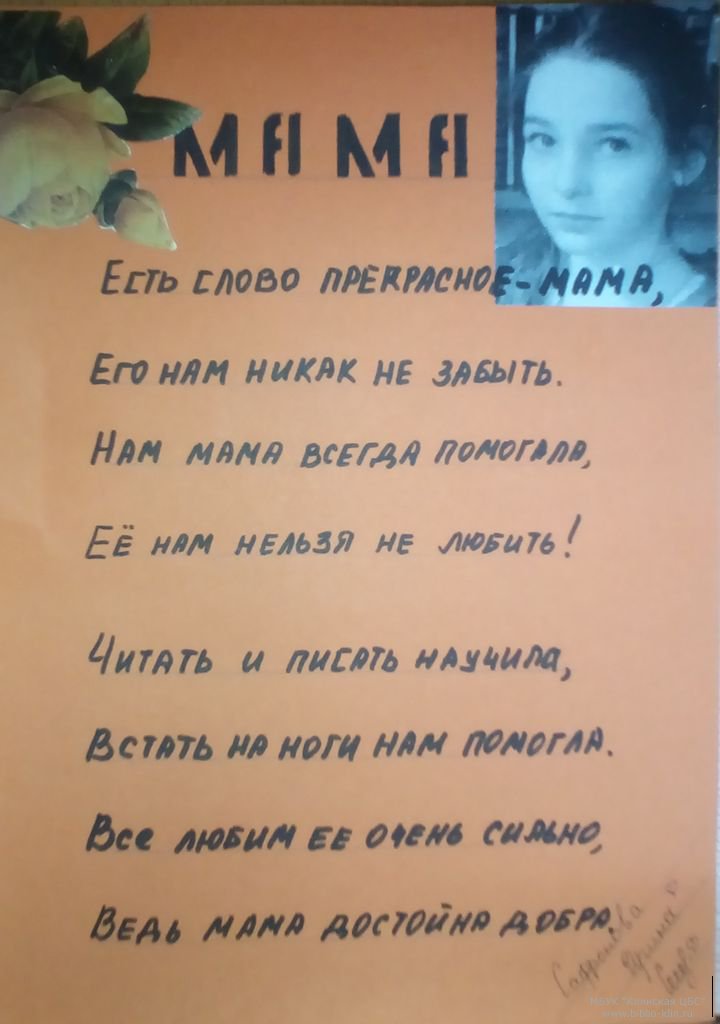 МАМА
Есть слово прекрасное-мама,
Его нам никак не забыть.
Нам мама всегда помогала,
Её нам нельзя не любить!
Читать и писать научила,
Встать на ноги нам помогла.
Все любим ее очень сильно,
Ведь мама достойна добра.
Сафронова
Ирина
"МБУК "Клинская ЦБС"
www.biblio-klin.ru